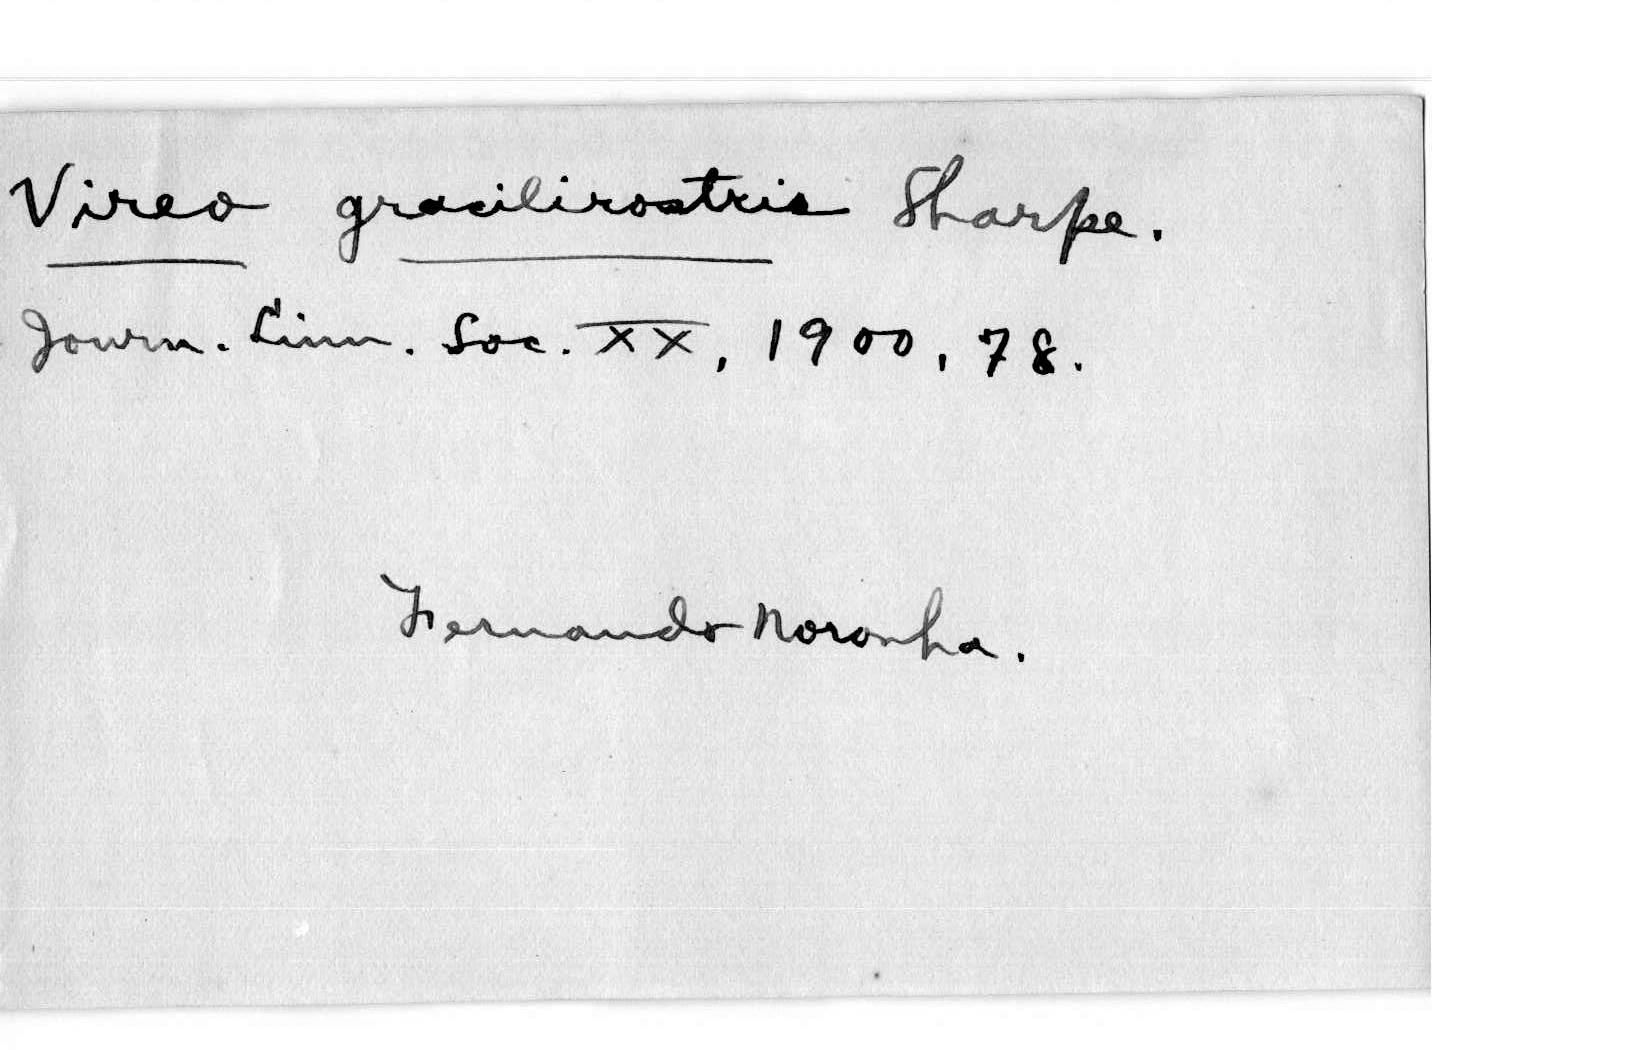 Vireo gracilirostris Sharpe.
Journ. Linn. Soc. XX, 1900, 78.
Fernando Noronha.